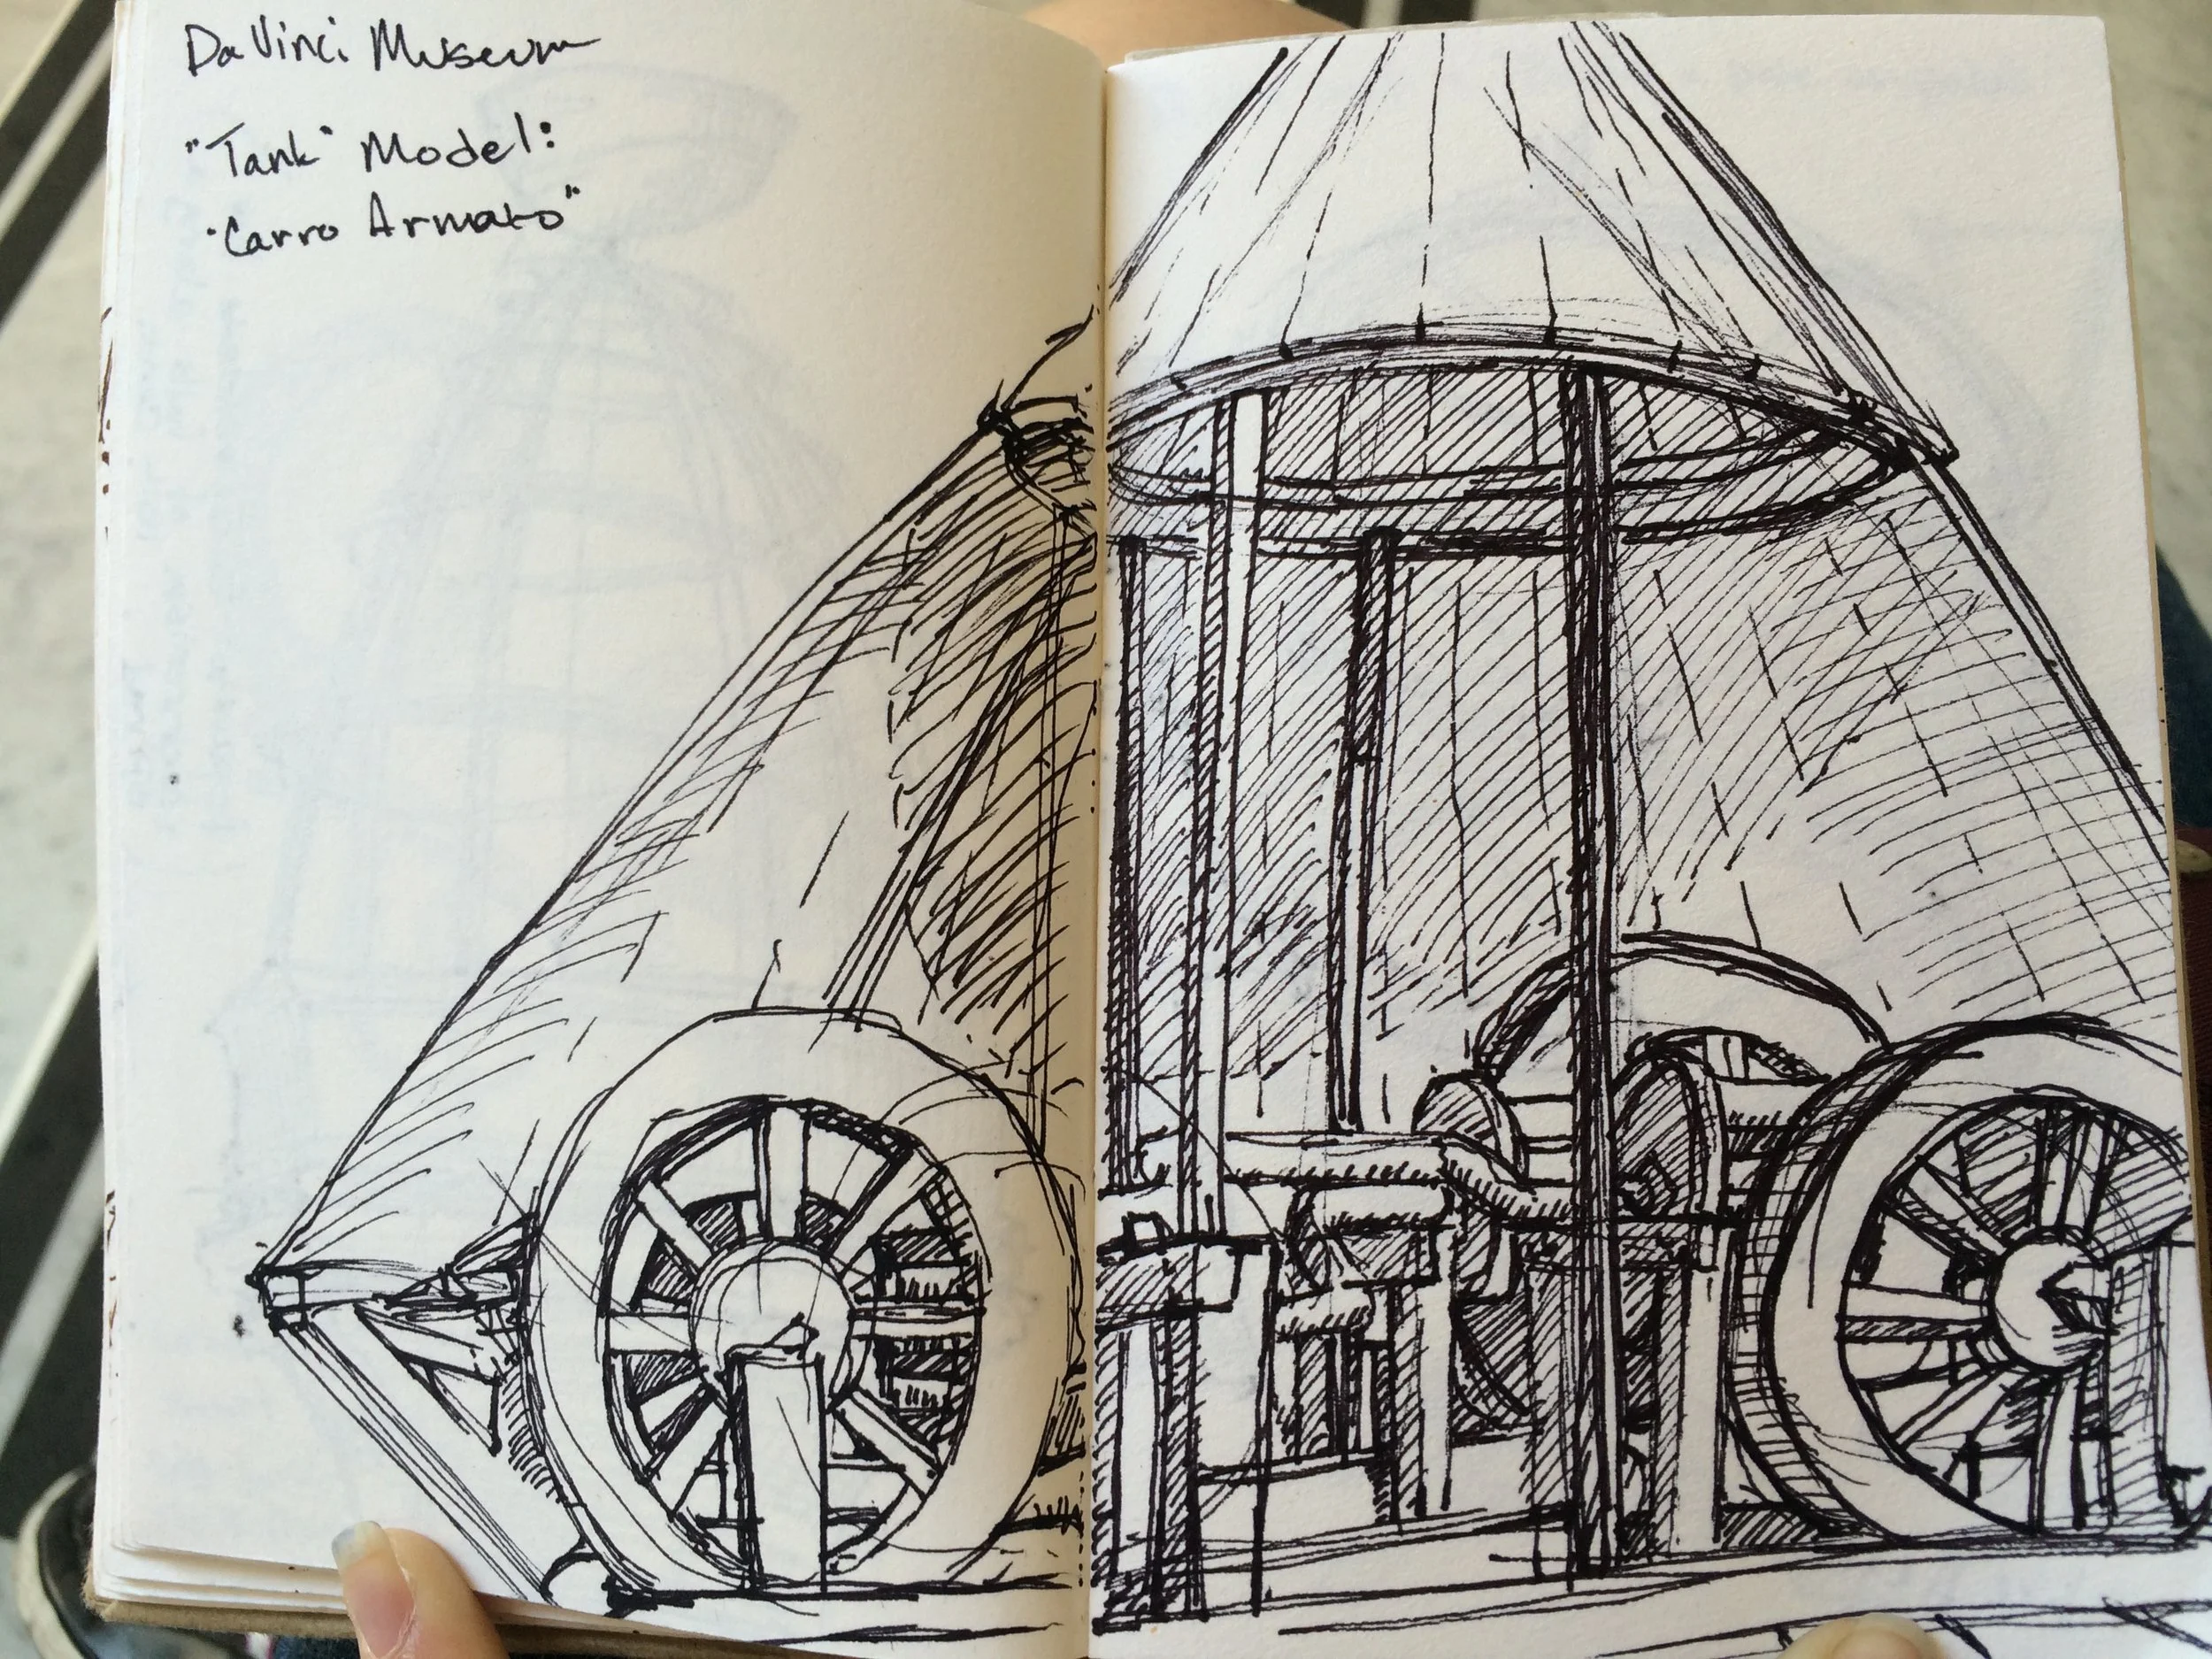 Da Vinci Museum
"Tank" Model:
"Carro Armato"